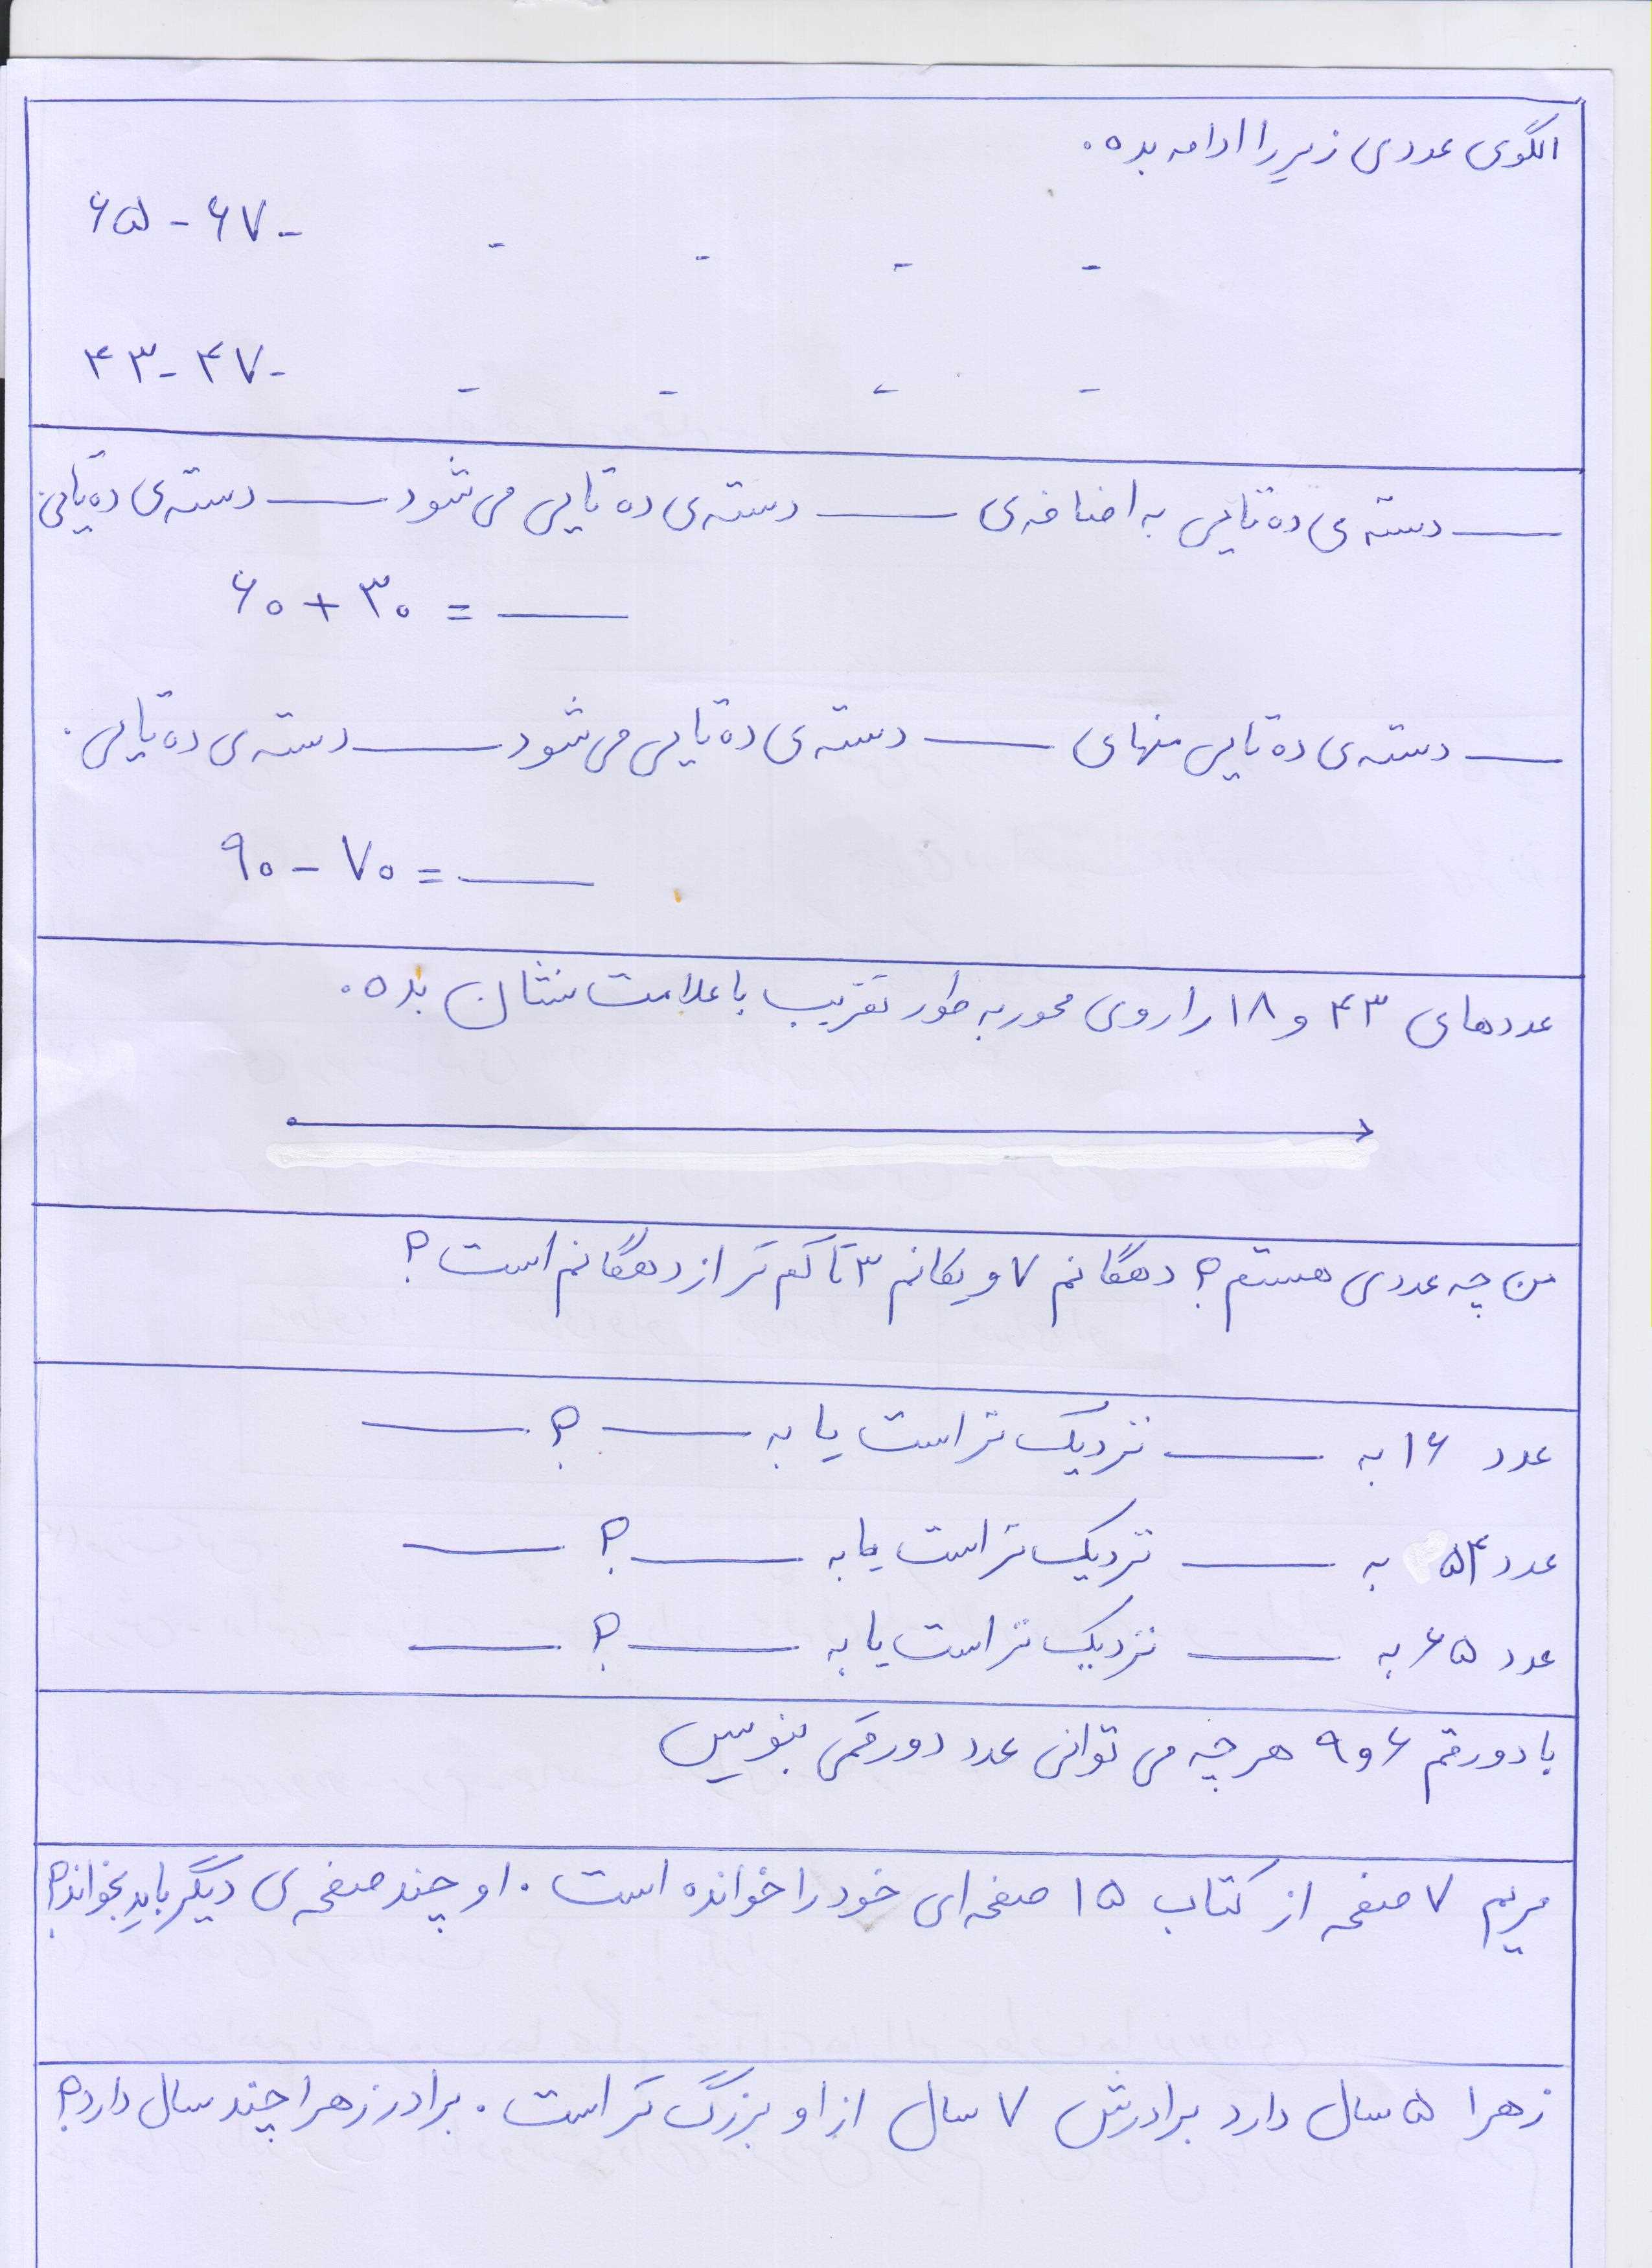 الگوی عددی زیر را ادامه بده.
۶۵ - ۶۷ -        -        -        -        -
۴۳ - ۴۷ -        -        -        -        -
ــــ دسته ی ده تایی به اضافه ی ــــ دسته ی ده تایی می شود ــــ دسته ی ده تایی.
۶۰ + ۳۰ = ــــ
ــــ دسته ی ده تایی منهای ــــ دسته ی ده تایی می شود ــــ دسته ی ده تایی.
۹۰ - ۷۰ = ــــ
عددهای ۴۳ و ۱۸ را روی محور به طور تقریب با علامت نشان بده.
من چه عددی هستم؟ دهگانم ۷ و یکانم ۳ تا کم تر از دهگانم است؟
عدد ۱۶ به ــــ نزدیک تر است یا به ــــ؟ ــــ
عدد ۵۴ به ــــ نزدیک تر است یا به ــــ؟ ــــ
عدد ۶۵ به ــــ نزدیک تر است یا به ــــ؟ ــــ
با دو رقم ۶ و ۹ هر چه می توانی عدد دو رقمی بنویس
مریم ۷ صفحه از کتاب ۱۵ صفحه ای خود را خوانده است. او چند صفحه ی دیگر باید بخواند؟
زهرا ۵ سال دارد برادرش ۷ سال از او بزرگ تر است. برادر زهرا چند سال دارد؟